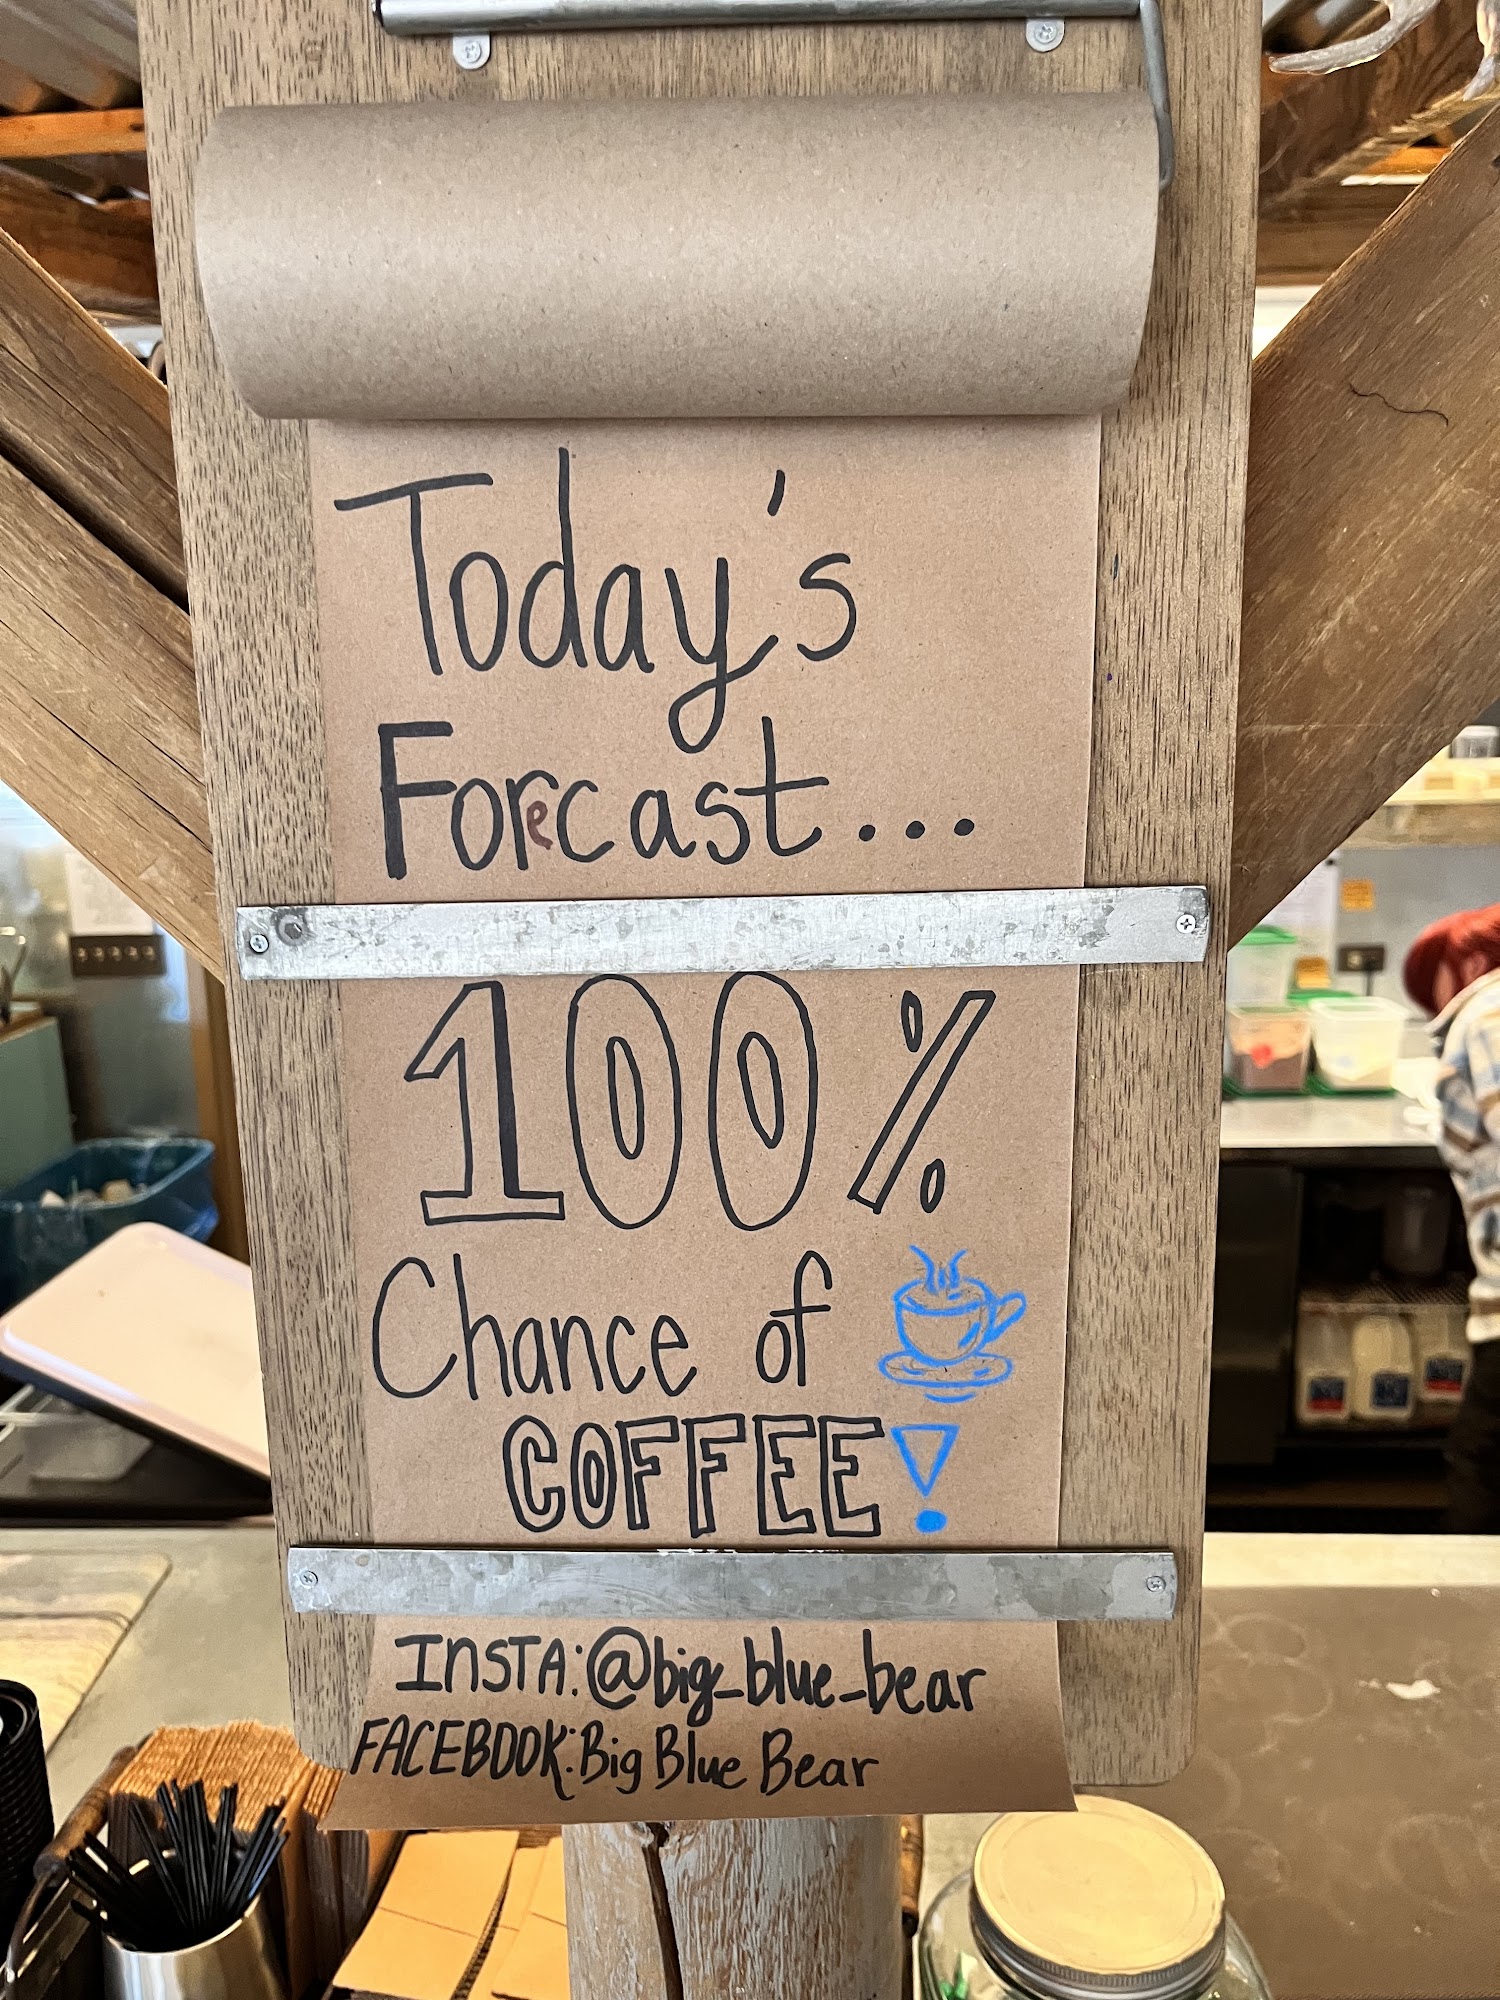 Today's
Forecast...
100%
Chance of
COFFEE!
INSTA:@big_blue_bear
FACEBOOK:Big Blue Bear